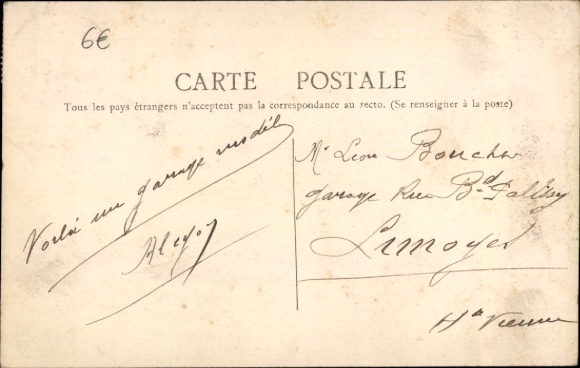 6€
CARTE POSTALE
Tous les pays étrangers n'acceptent pas la correspondance au recto. (Se renseigner à la poste)
Voilà un garage modèl
Mr Léon Boucher
garage Rue Bd Palissy
Limoges
Hte Vienne